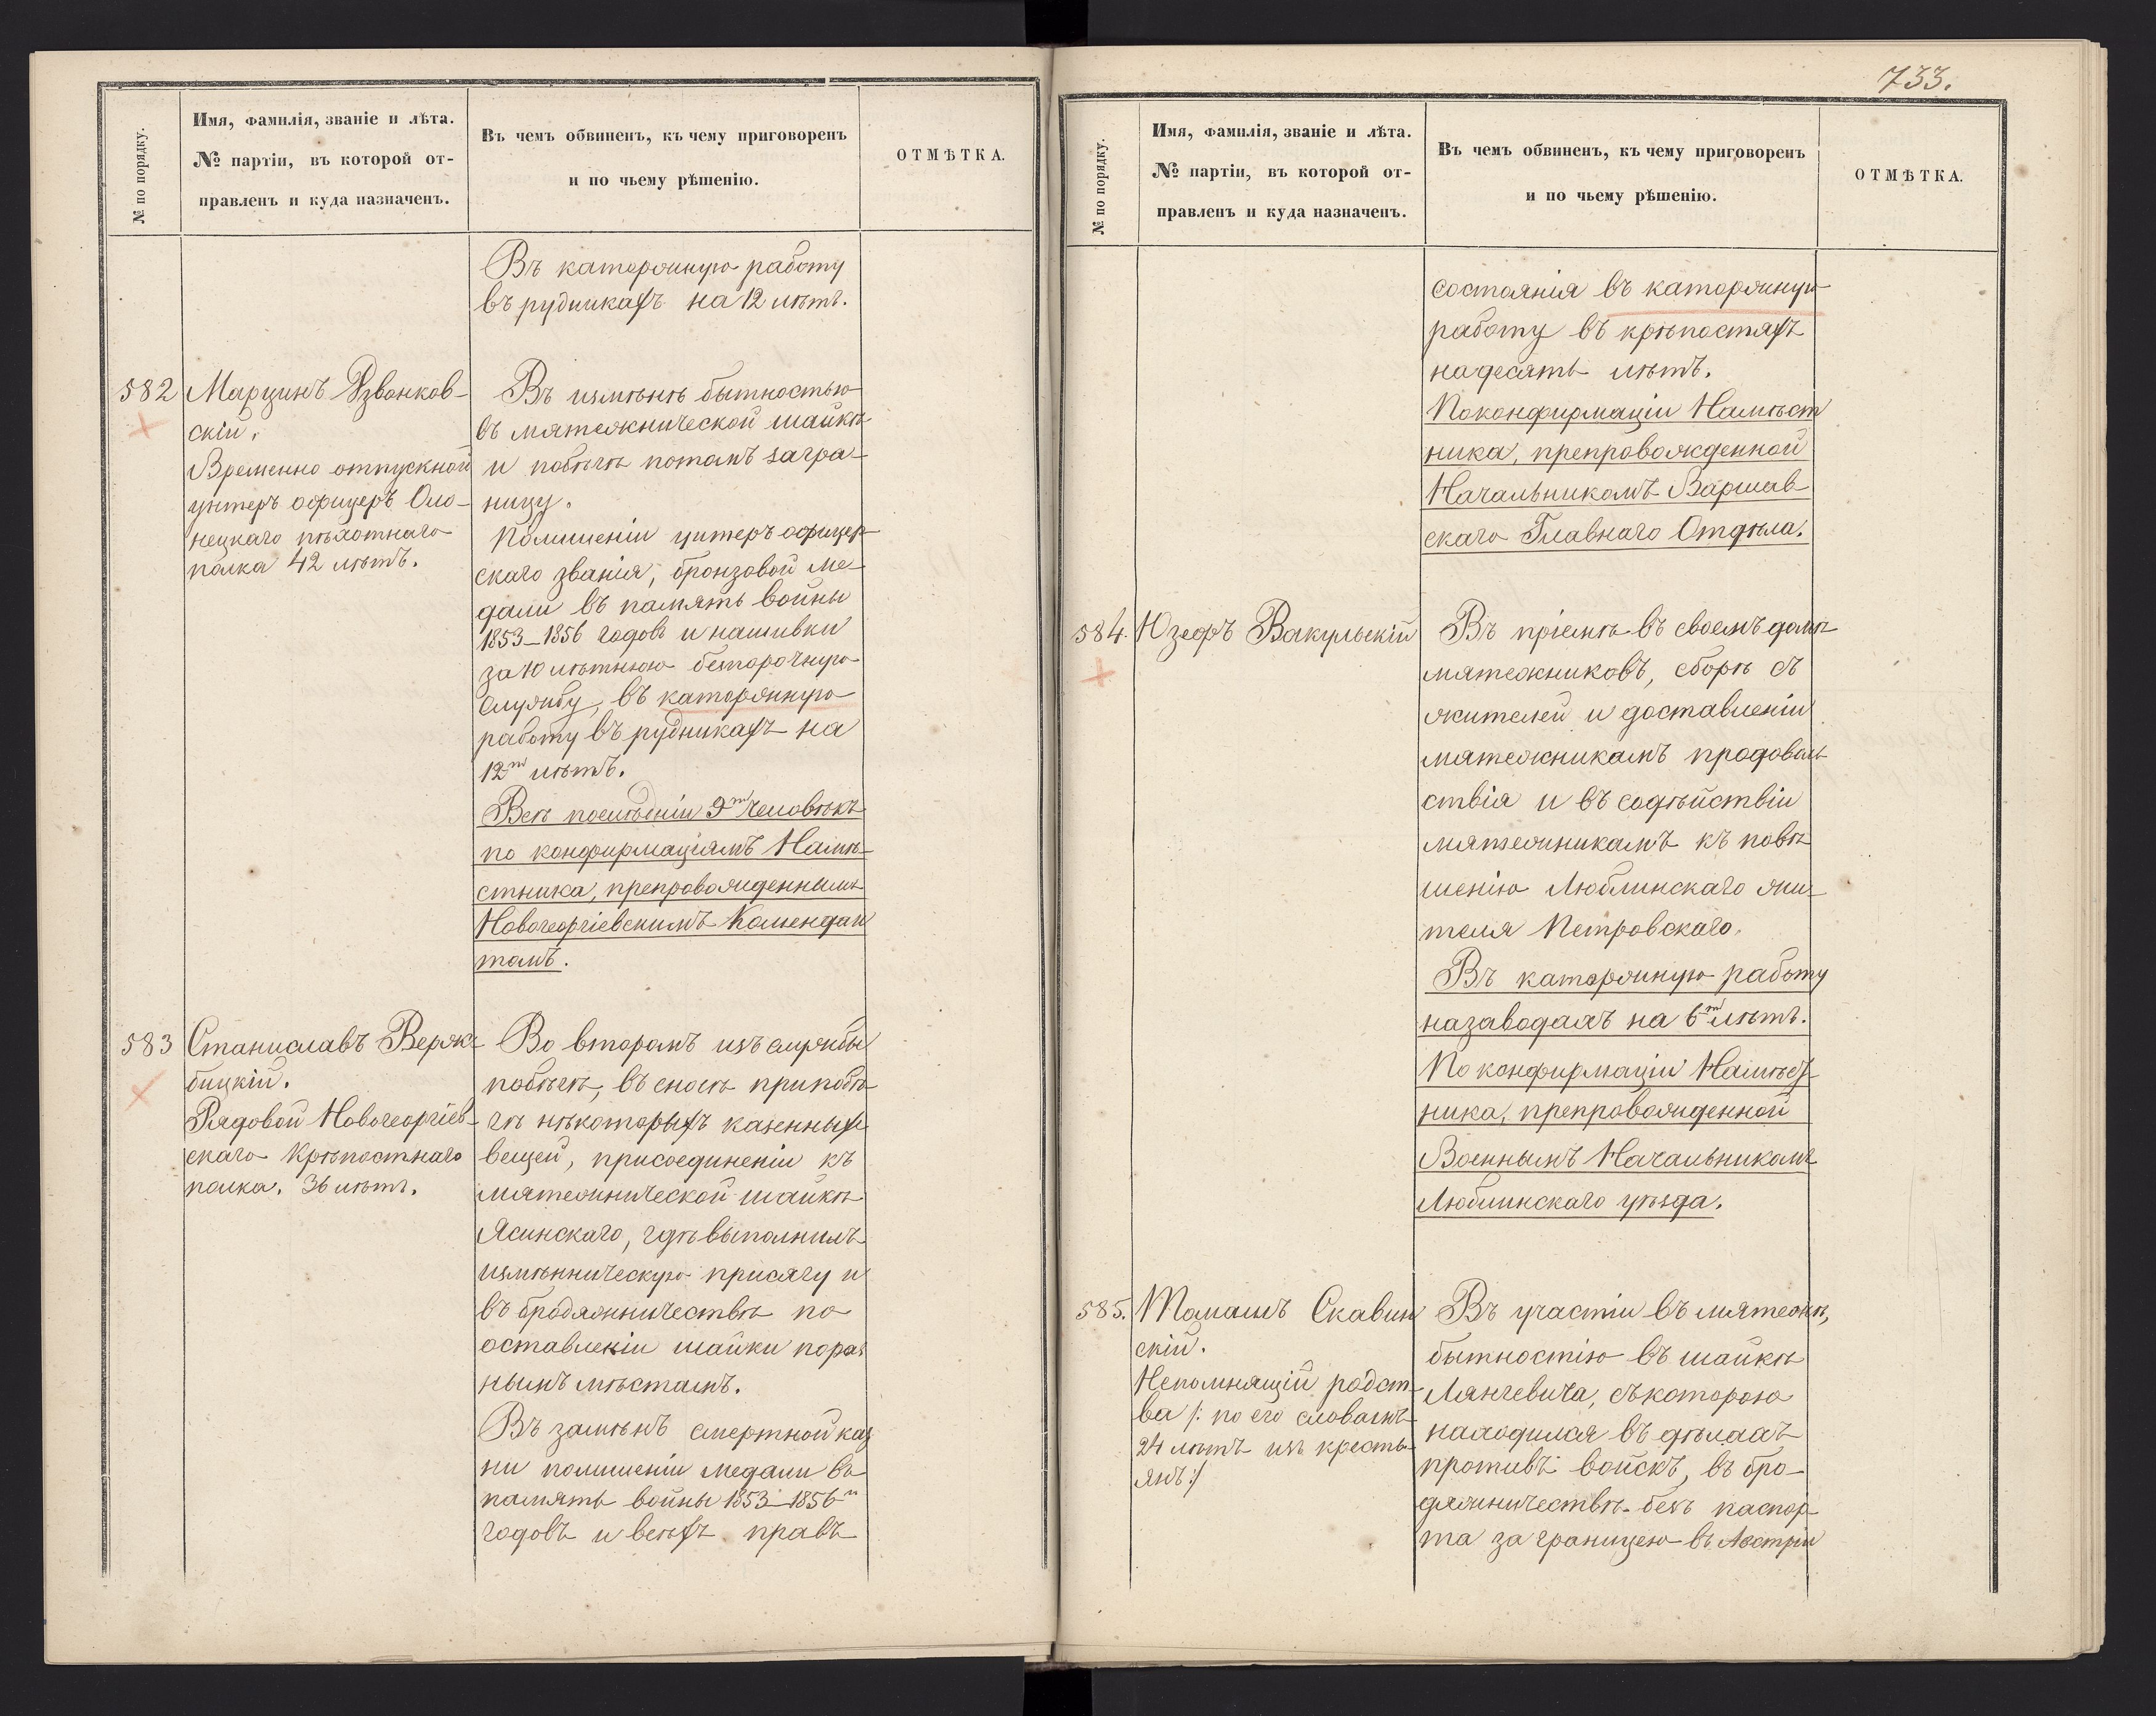 № по порядку.
Имя, фамилія, званіе и лѣта.
№ партіи, въ которой от-
правленъ и куда назначенъ.
Въ чемъ обвиненъ, къ чему приговоренъ
и по чьему рѣшенію.
ОТМѢТКА.
Въ каторжную работу
въ рудникахъ на 12 лѣтъ.
582
Марцинъ Дзвонков-
скій.
Временно отпускной
унтеръ офицеръ Оло-
нецкаго пѣхотнаго
полка 42 лѣтъ.
Въ измѣнѣ бытностью
въ мятежнической шайкѣ
и побѣгѣ потомъ загра-
ницу.
По лишеніи унтеръ офицер-
скаго званія, бронзовой ме-
дали въ память войны
1853–1856 годовъ и нашивки
за 10 лѣтнюю безпорочную
службу, въ каторжную
работу въ рудникахъ на
12ти лѣтъ.
Всѣ послѣдніи 9ть человѣкъ
по конфирмаціямъ Намѣ-
стника, препровожденнымъ
Новогеоргіевскимъ Комендан
томъ.
583
Станиславъ Верж-
бицкій.
Рядовой Новогеоргіев-
скаго Крѣпостнаго
полка. 36 лѣтъ.
Во второмъ изъ службы
побѣгѣ, въ сносѣ при побѣ-
гѣ нѣкоторыхъ казенныхъ
вещей, присоединеніи къ
мятежнической шайкѣ
Ясинскаго, гдѣ выполнилъ
измѣнническую присягу и
въ бродяжничествѣ по
оставленіи шайки по раз
нымъ мѣстамъ.
Въ замѣнъ смертной каз
ни по лишеніи медали въ
память войны 1853–1856хъ
годовъ и всѣхъ правъ
733.
№ по порядку.
Имя, фамилія, званіе и лѣта.
№ партіи, въ которой от-
правленъ и куда назначенъ.
Въ чемъ обвиненъ, къ чему приговоренъ
и по чьему рѣшенію.
ОТМѢТКА.
состоянія въ каторжную
работу въ крѣпостяхъ
на десять лѣтъ.
По конфирмаціи Намѣст
ника, препровожденной
Начальникомъ Варшав-
скаго Главнаго Отдѣла.
584.
Юзефъ Вакульскій
Въ пріемѣ въ своемъ домѣ
мятежниковъ, сборѣ съ
жителей и доставленіи
мятежникамъ продоволь
ствія и въ содѣйствіи
мятежникамъ къ повѣ
шенію Люблинскаго жи-
теля Петровскаго.
Въ каторжную работу
на заводахъ на 6ть лѣтъ.
По конфирмаціи Намѣст-
ника, препровожденной
Военнымъ Начальникомъ
Люблинскаго уѣзда.
585.
Томашъ Скавин
скій.
Непомнящій родст-
ва /: по его словамъ
24 лѣтъ изъ кресть-
янъ:/
Въ участіи въ мятежѣ,
бытностію въ шайкѣ
Лангевича, съ которою
находился въ дѣлахъ
противъ войскъ, въ бро-
дяжничествѣ безъ паспор-
та за границею въ Австріи